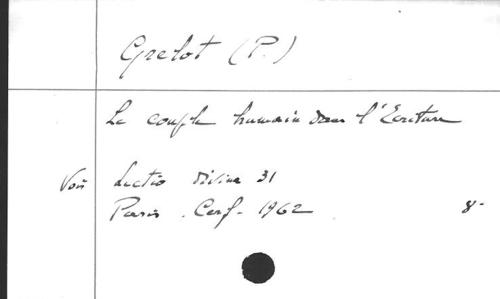 Grelot (P.)
Le couple humain dans l'Ecriture
Voir Lectio divina 31
Paris . Cerf - 1962 8-